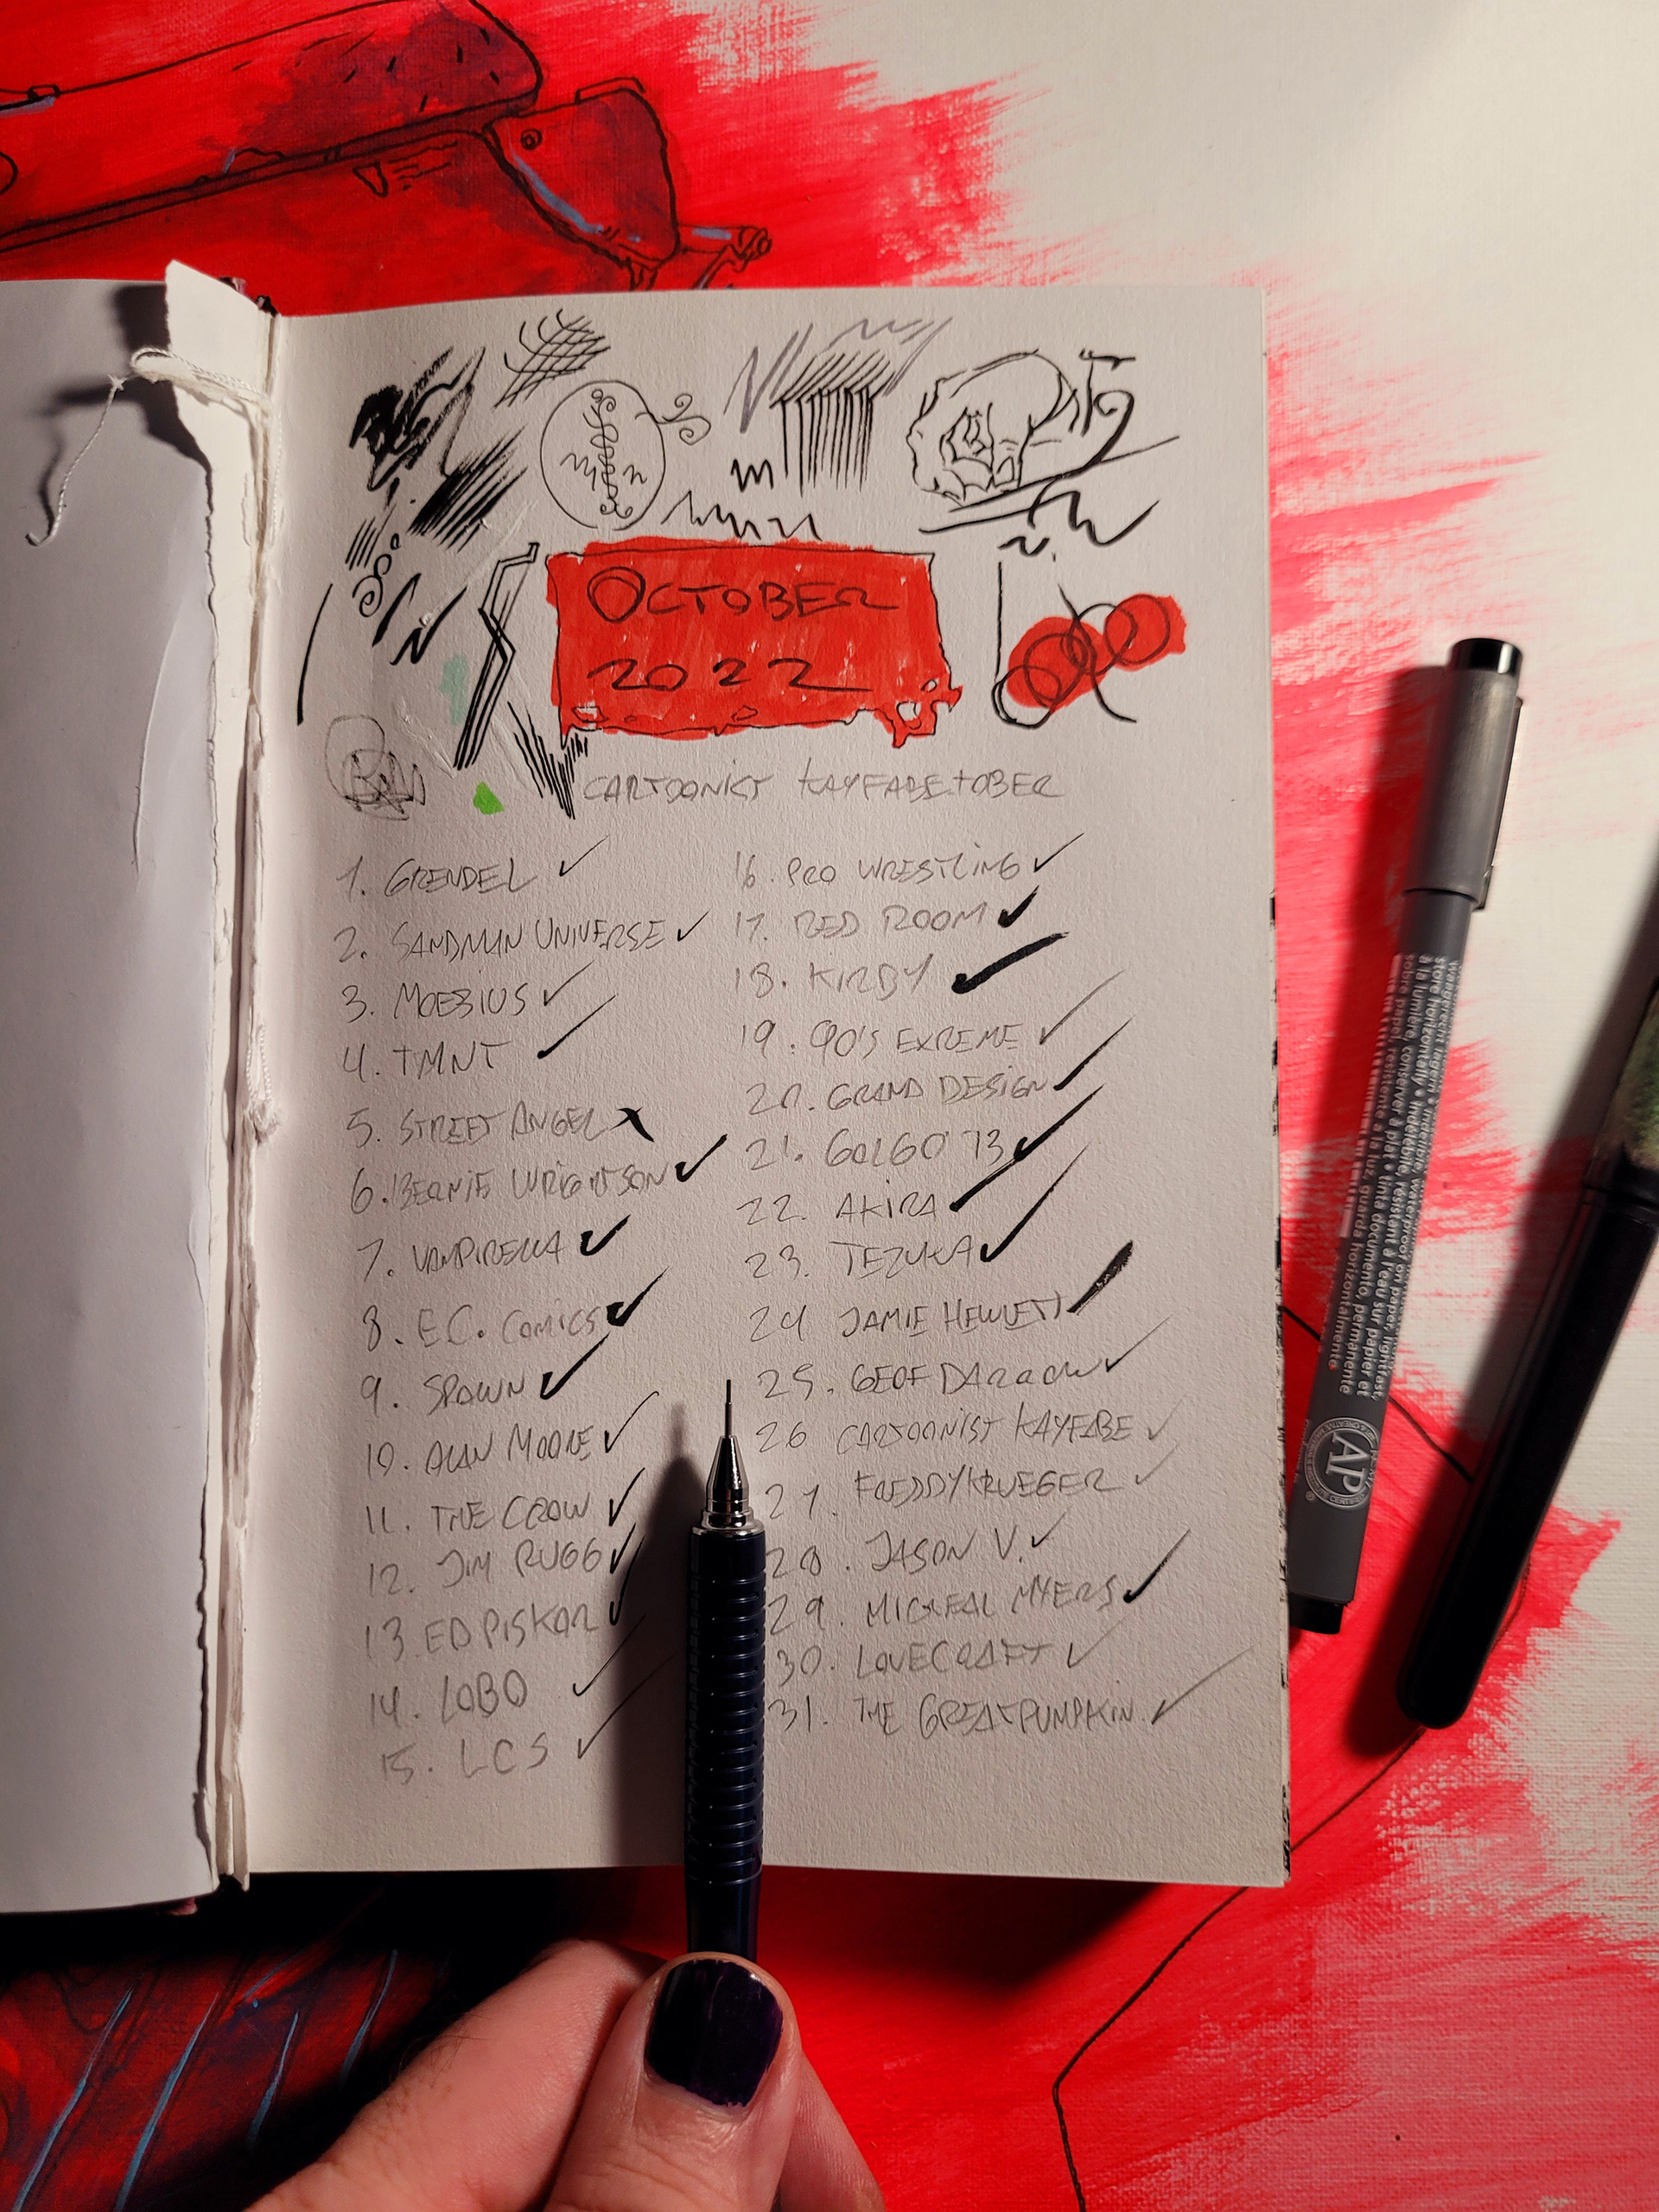 OCTOBER
2022
CARTOONIST KAYFABETOBER
1. GRENDEL ✓
2. SANDMAN UNIVERSE ✓
3. MOEBIUS ✓
4. TMNT ✓
5. STREET ANGEL ✓
6. BERNIE WRIGHTSON ✓
7. VAMPIRELLA ✓
8. E.C. COMICS ✓
9. SPAWN ✓
10. ALAN MOORE ✓
11. THE CROW ✓
12. JIM RUGG ✓
13. ED PISKOR ✓
14. LOBO ✓
15. LCS ✓
16. PRO WRESTLING ✓
17. RED ROOM ✓
18. KIRBY ✓
19. 90'S EXREME ✓
20. GRAND DESIGN ✓
21. GOLGO 13 ✓
22. AKIRA ✓
23. TEZUKA ✓
24 JAMIE HEWLETT ✓
25. GEOF DARROW ✓
26 CARTOONIST KAYFABE ✓
27. FREDDY KRUEGER ✓
28. JASON V. ✓
29. MICHEAL MYERS ✓
30. LOVECRAFT ✓
31. THE GREAT PUMPKIN. ✓
store horizontally • indelible, waterproof on paper, lightfast,
sobre papel, resistente a la luz, guarda horizontalmente
AP